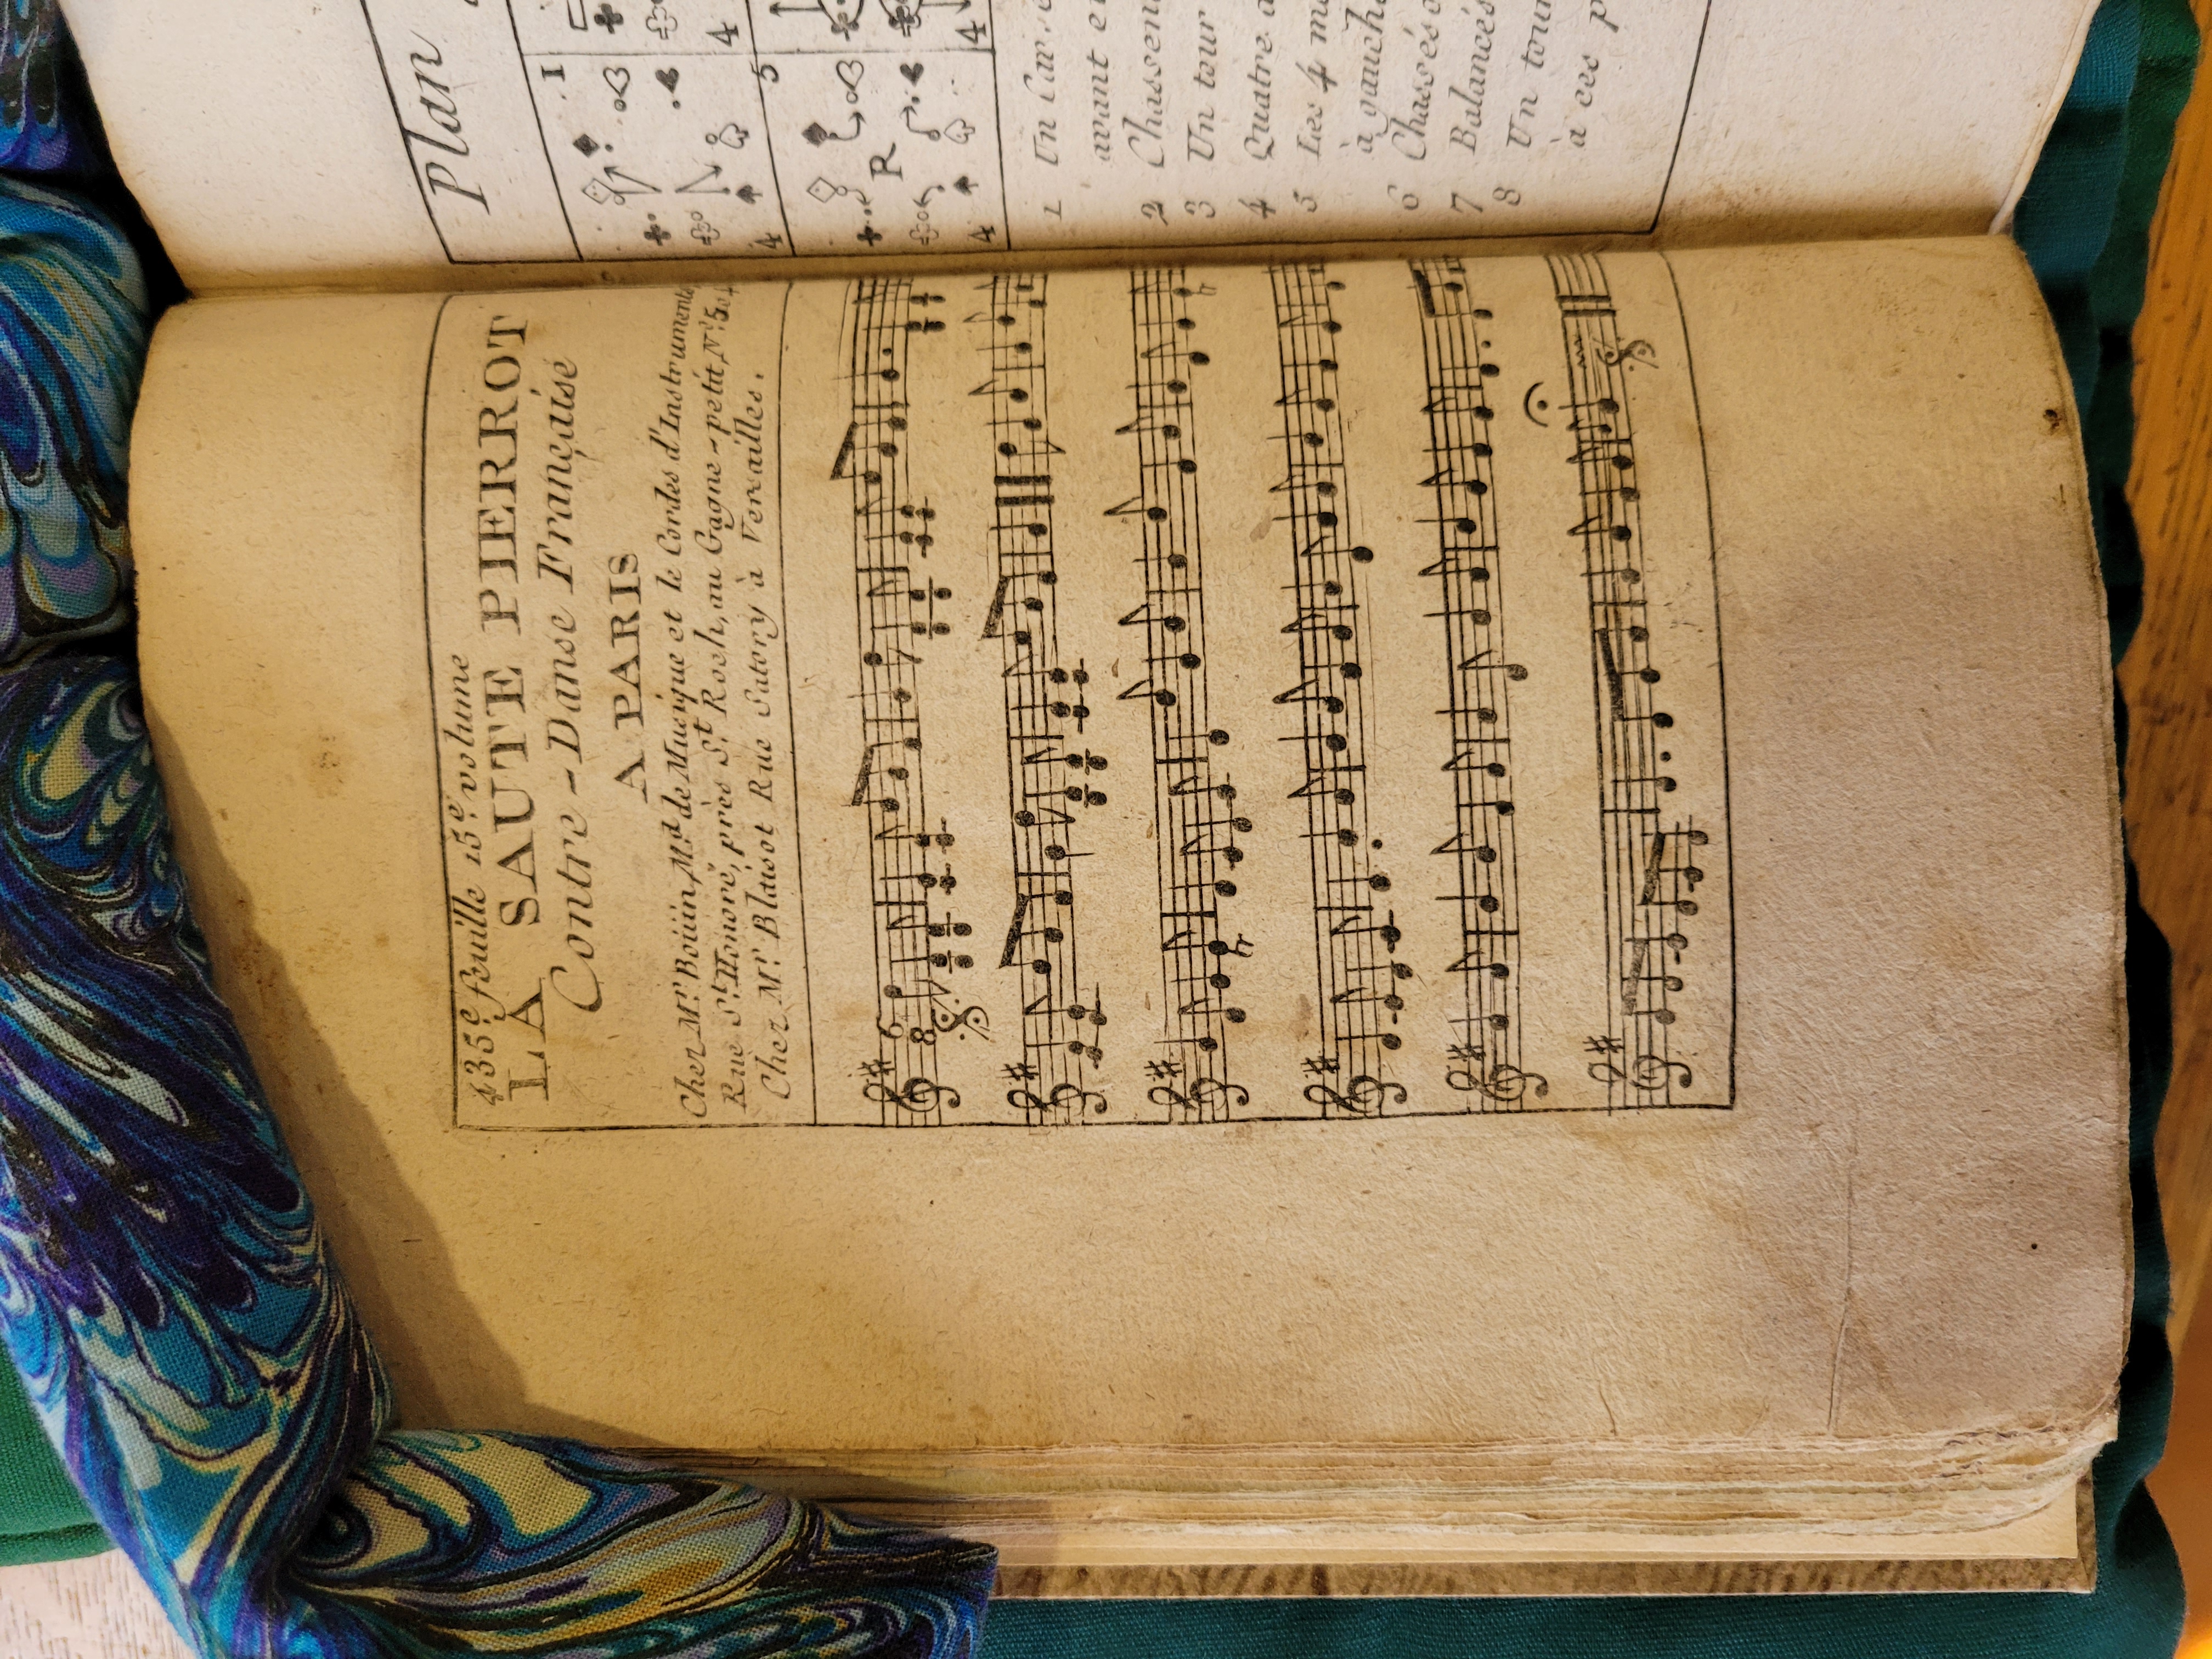 435.e feuille 15.e volume
LA SAUTE PIERROT
Contre-Danse Française
A PARIS
Chez M.r Boüin, M.d de Musique et de Cordes d'Instruments
Rue S.t Honoré, près S.t Roch, au Gagne-petit, N.o 504
Chez M.r Blaisot Rue Satory à Versailles.
6
8
Plan
1
4
4
5
R
4
4
1 Un Car.
avant e
2 Chassen
3 Un tour
4 Quatre.
5 Les 4 m
à gauche
6 Chassés
7 Balancés
8 Un tour
à ces p